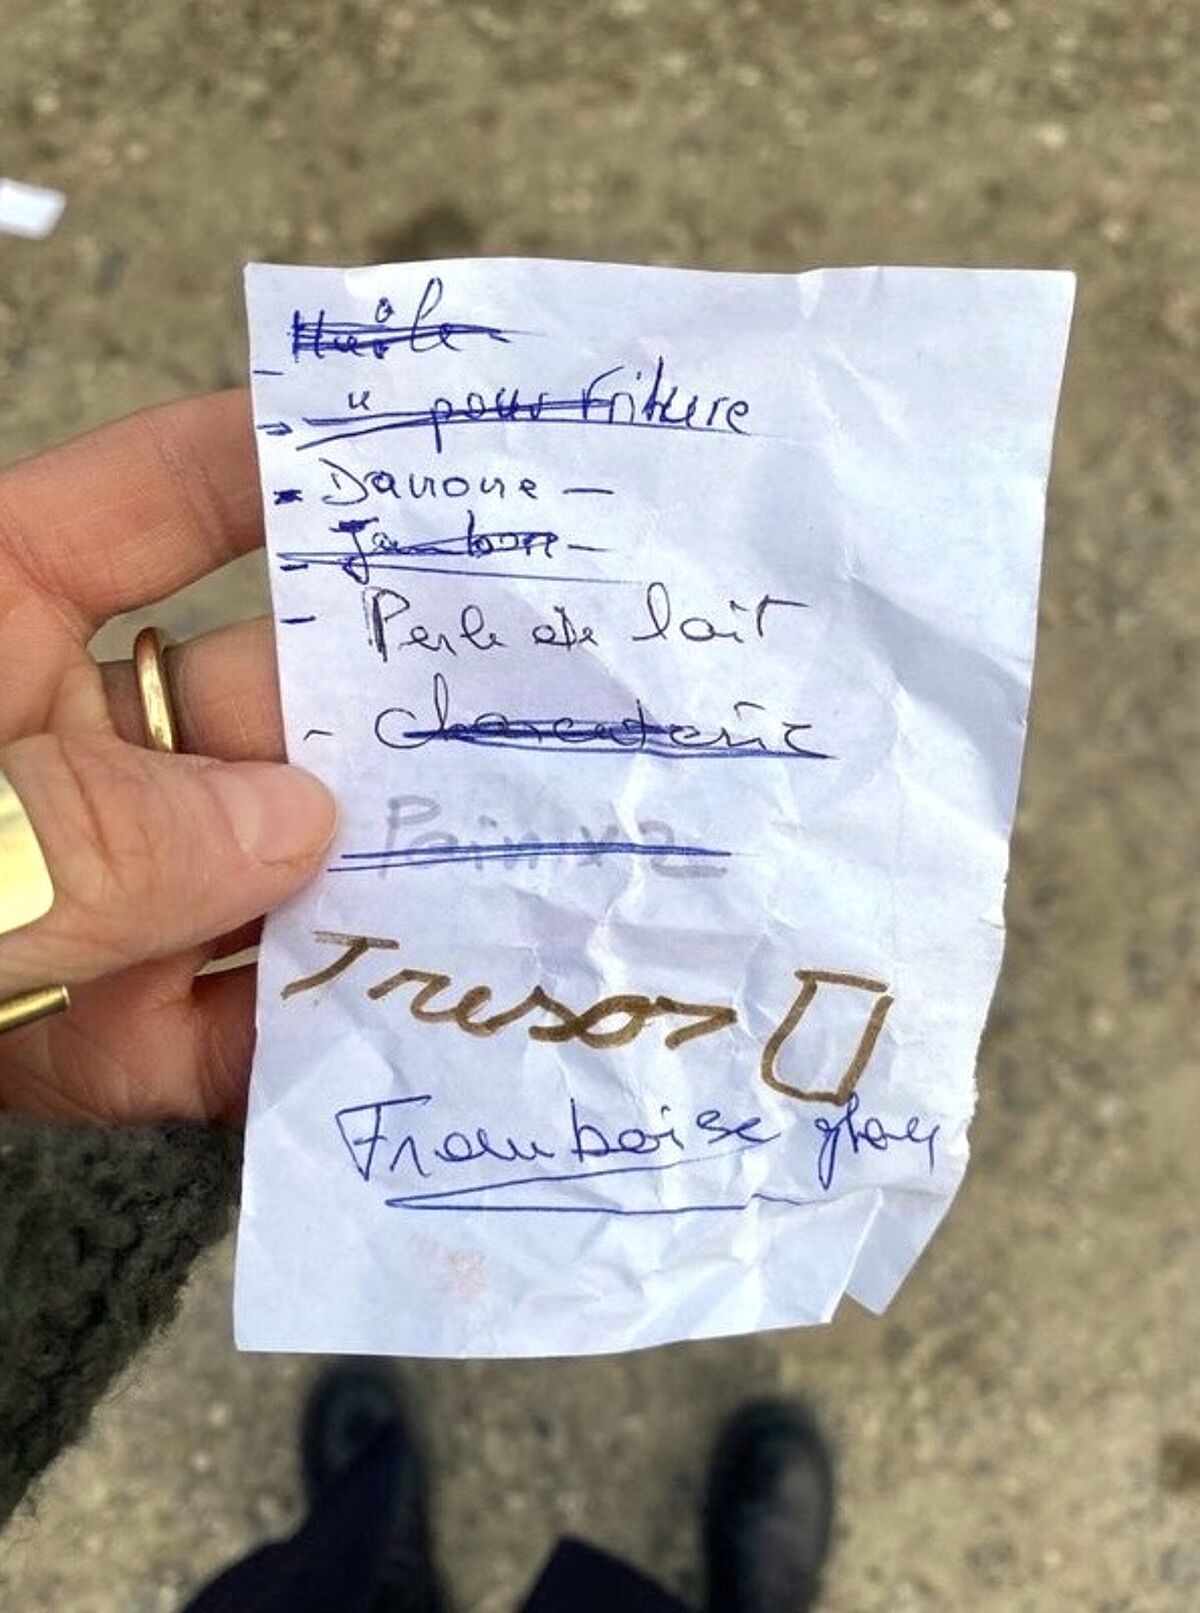 Huile
- " pour Friture
- Danone -
- Jambon -
- Perle de lait
- charcuterie
Pain x 2
Tresor
Framboise